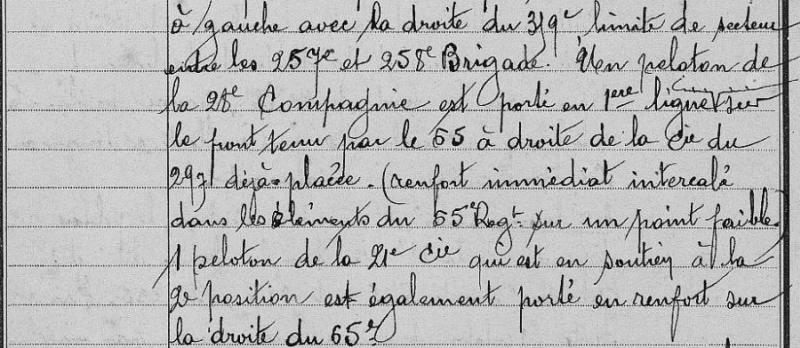 à gauche avec la droite du 319e limite de secteur
entre les 257e et 258e Brigade. Un peloton de
la 28e Compagnie est porté en 1ere ligne sur
le front tenu par le 65 à droite de la Cie du
293 déjà placée. (renfort immédiat intercalé
dans les éléments du 65e Regt. sur un point faible)
1 peloton de la 21e Cie qui est en soutien à la
2e position est également porté en renfort sur
la droite du 65e